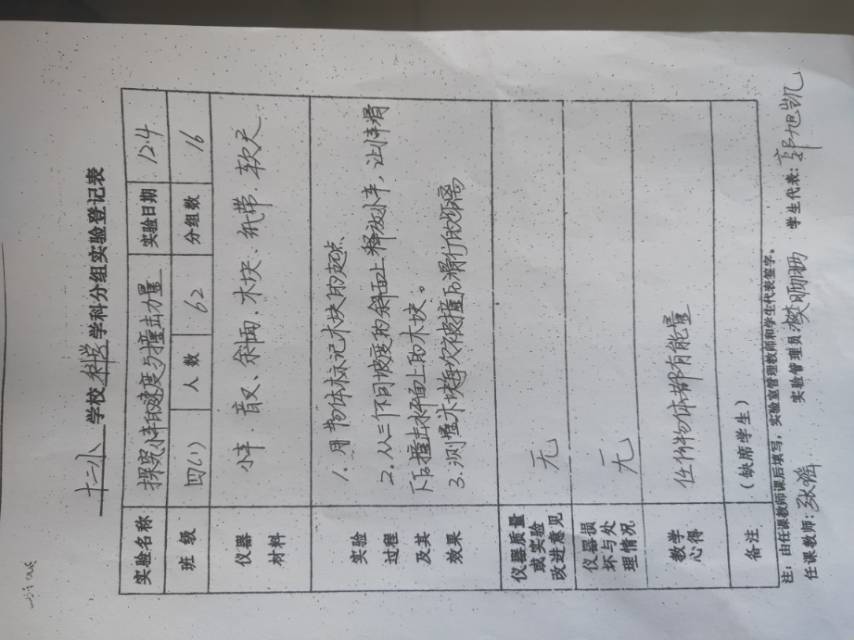 十二小 学校 科学 学科分组实验登记表
实验名称 探究小车的速度与撞击力量 实验日期 12.4
班级 四(1) 人数 62 分组数 16
仪器材料 小车、音叉、斜面、木块、纸带、软尺
实验过程及其效果
1. 用物体标记木块的起点
2. 从三个不同坡度的斜面上释放小车，让小车滑
下后撞击水平面上的木块。
3. 测量木块每次被撞后滑行的距离
仪器质量或实验改进意见 无
仪器损坏与处理情况 无
教学心得 任何物体都有能量
备注 (缺席学生)
注：由任课教师课后填写，实验室管理教师和学生代表签字。
任课教师: 实验管理员: 学生代表: 郭旭凯